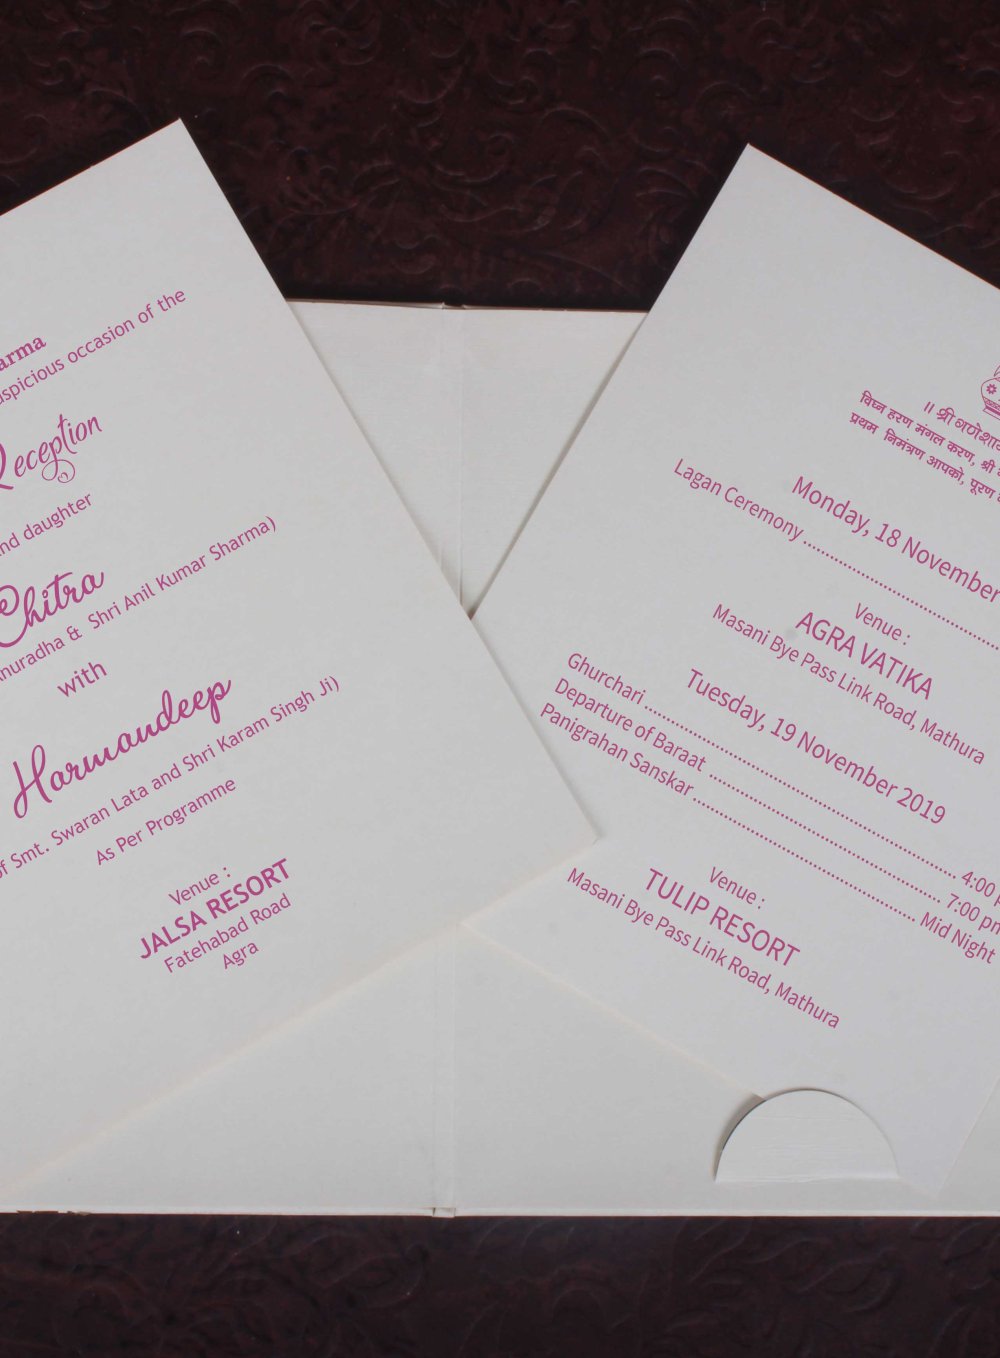 auspicious occasion of the
Reception
daughter
Chitra
Anuradha & Shri Anil Kumar Sharma)
with
Harmandeep
of Smt. Swaran Lata and Shri Karam Singh Ji)
As Per Programme
Venue :
JALSA RESORT
Fatehabad Road
Agra
॥ श्री
विघ्न हरण मंगल करण, श्री
प्रथम निमंत्रण आपको, पूरण
Monday, 18 November
Lagan Ceremony ..............................
Venue :
AGRA VATIKA
Masani Bye Pass Link Road, Mathura
Tuesday, 19 November 2019
Ghurchari .............................. 4:00
Departure of Baraat .............................. 7:00 pm
Panigrahan Sanskar .............................. Mid Night
Venue :
TULIP RESORT
Masani Bye Pass Link Road, Mathura